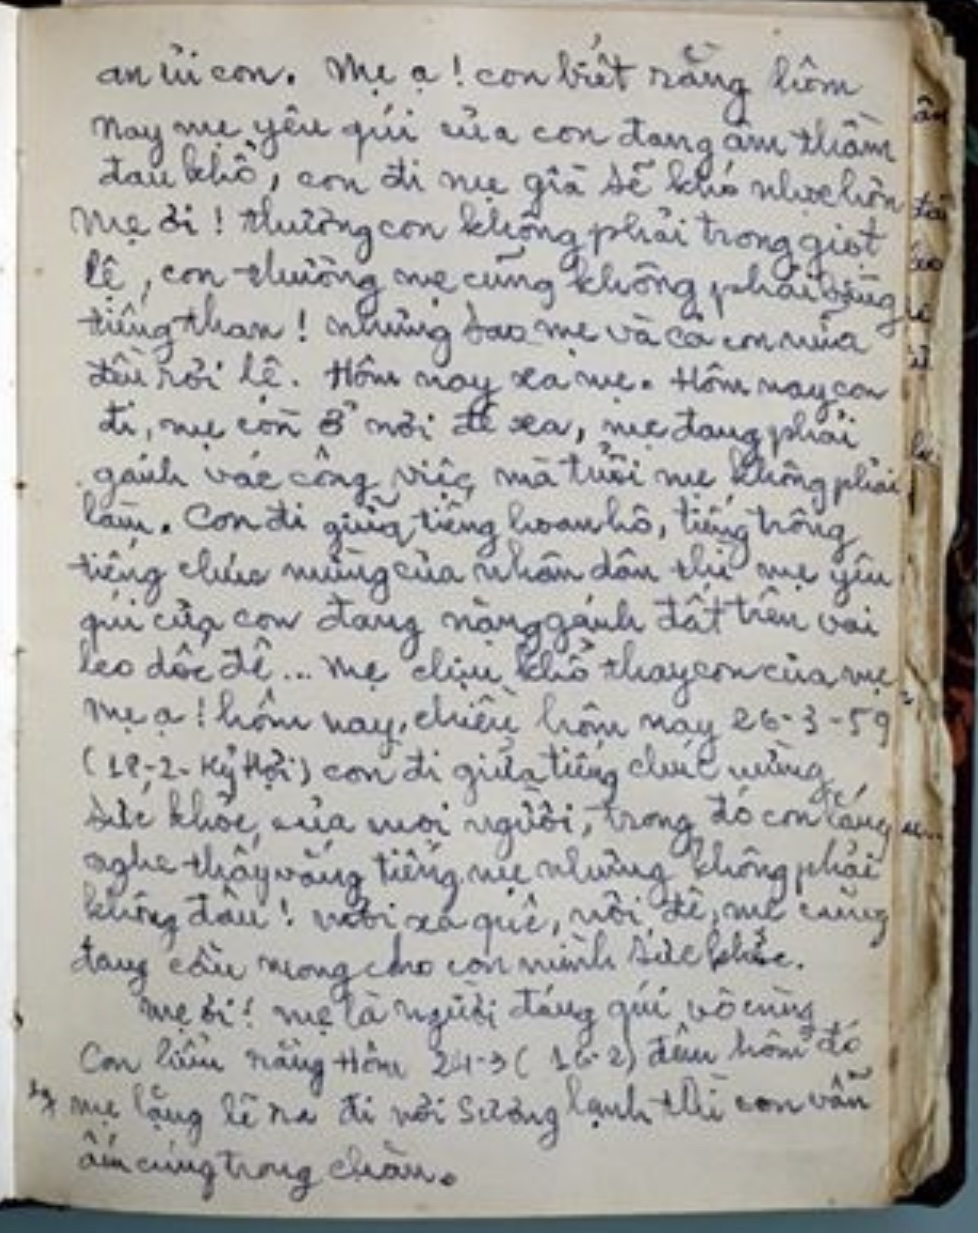 an ủi con. Mẹ ạ! con biết rằng hôm
nay mẹ yêu qúi của con đang âm thầm
đau khổ, con đi mẹ già sẽ khó nhọc hơn
Mẹ ơi! thương con không phải trong giọt
lệ, con thương mẹ cũng không phải bằng
tiếng than! nhưng sao mẹ và cả con nữa
đều rơi lệ. Hôm nay xa mẹ. Hôm nay con
đi, mẹ còn ở nơi đê xa, mẹ đang phải
gánh vác công việc mà tuổi mẹ không phải
làm. Con đi giữa tiếng hoan hô, tiếng trống
tiếng chúc mừng của nhân dân thì mẹ yêu
qúi của con đang nặng gánh đất trên vai
leo dốc đê... Mẹ chịu khổ thay con của mẹ
Mẹ ạ! hôm nay, chiều hôm nay 26-3-59
(18-2-Kỷ Hợi) con đi giữa tiếng chúc mừng
sức khỏe của mọi người, trong đó con lắng
nghe thấy vẳng tiếng mẹ nhưng không phải
không đâu! nơi xa quê, nơi đê, mẹ cũng
đang cầu mong cho con mình sức khỏe.
Mẹ ơi! mẹ là người đáng qúi vô cùng
Con hiểu rằng Hôm 24-3 (16-2) đêm hôm đó
mẹ lặng lẽ ra đi nơi sương lạnh thì con vẫn
ấm cúng trong chăn.